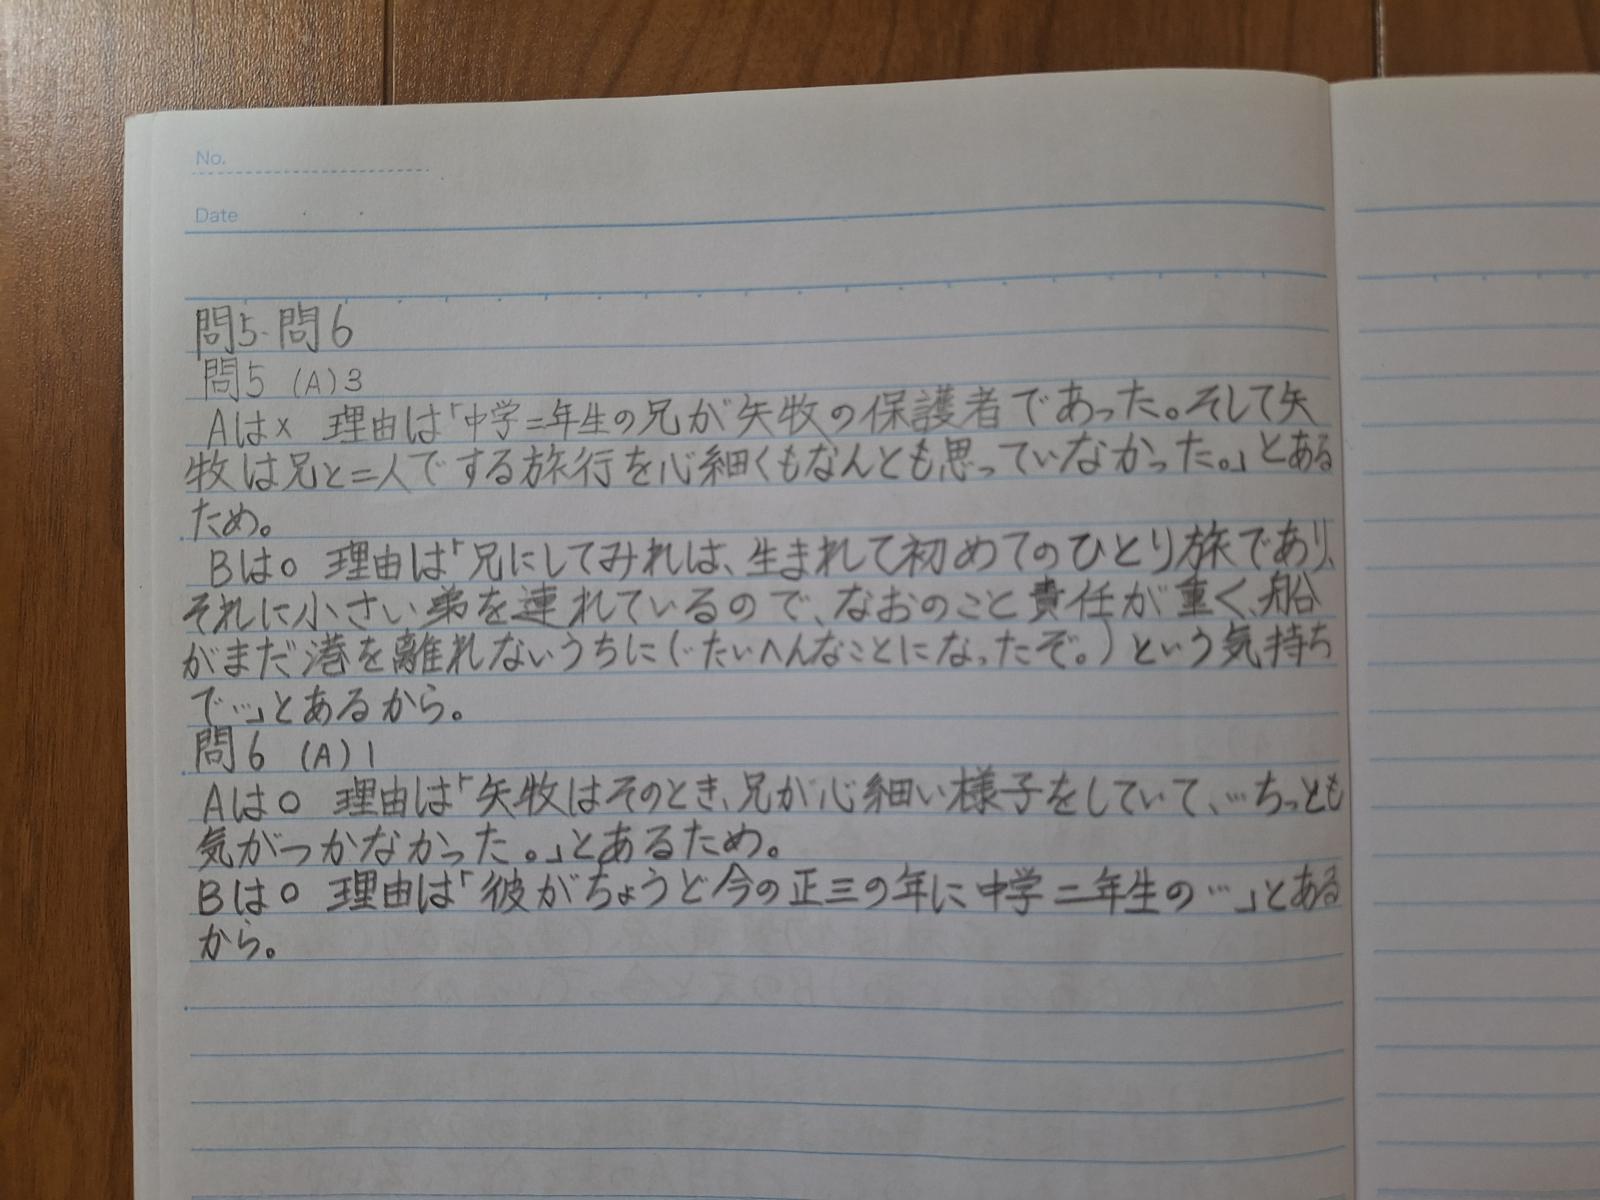 No.
Date
問5・問6
問5 (A)3
Aは× 理由は「中学二年生の兄が矢牧の保護者であった。そして矢
牧は兄と二人でする旅行を心細くもなんとも思っていなかった。」とある
ため。
Bは○ 理由は「兄にしてみれは、生まれて初めてのひとり旅であり、
それに小さい弟を連れているので、なおのこと責任が重く、船
がまだ港を離れないうちに(・たいへんなことになったぞ。)という気持ち
で…」とあるから。
問6 (A)1
Aは○ 理由は「矢牧はそのとき、兄が心細い様子をしていて、…ちっとも
気がつかなかった。」とあるため。
Bは○ 理由は「彼がちょうど今の正三の年に中学二年生の…」とある
から。